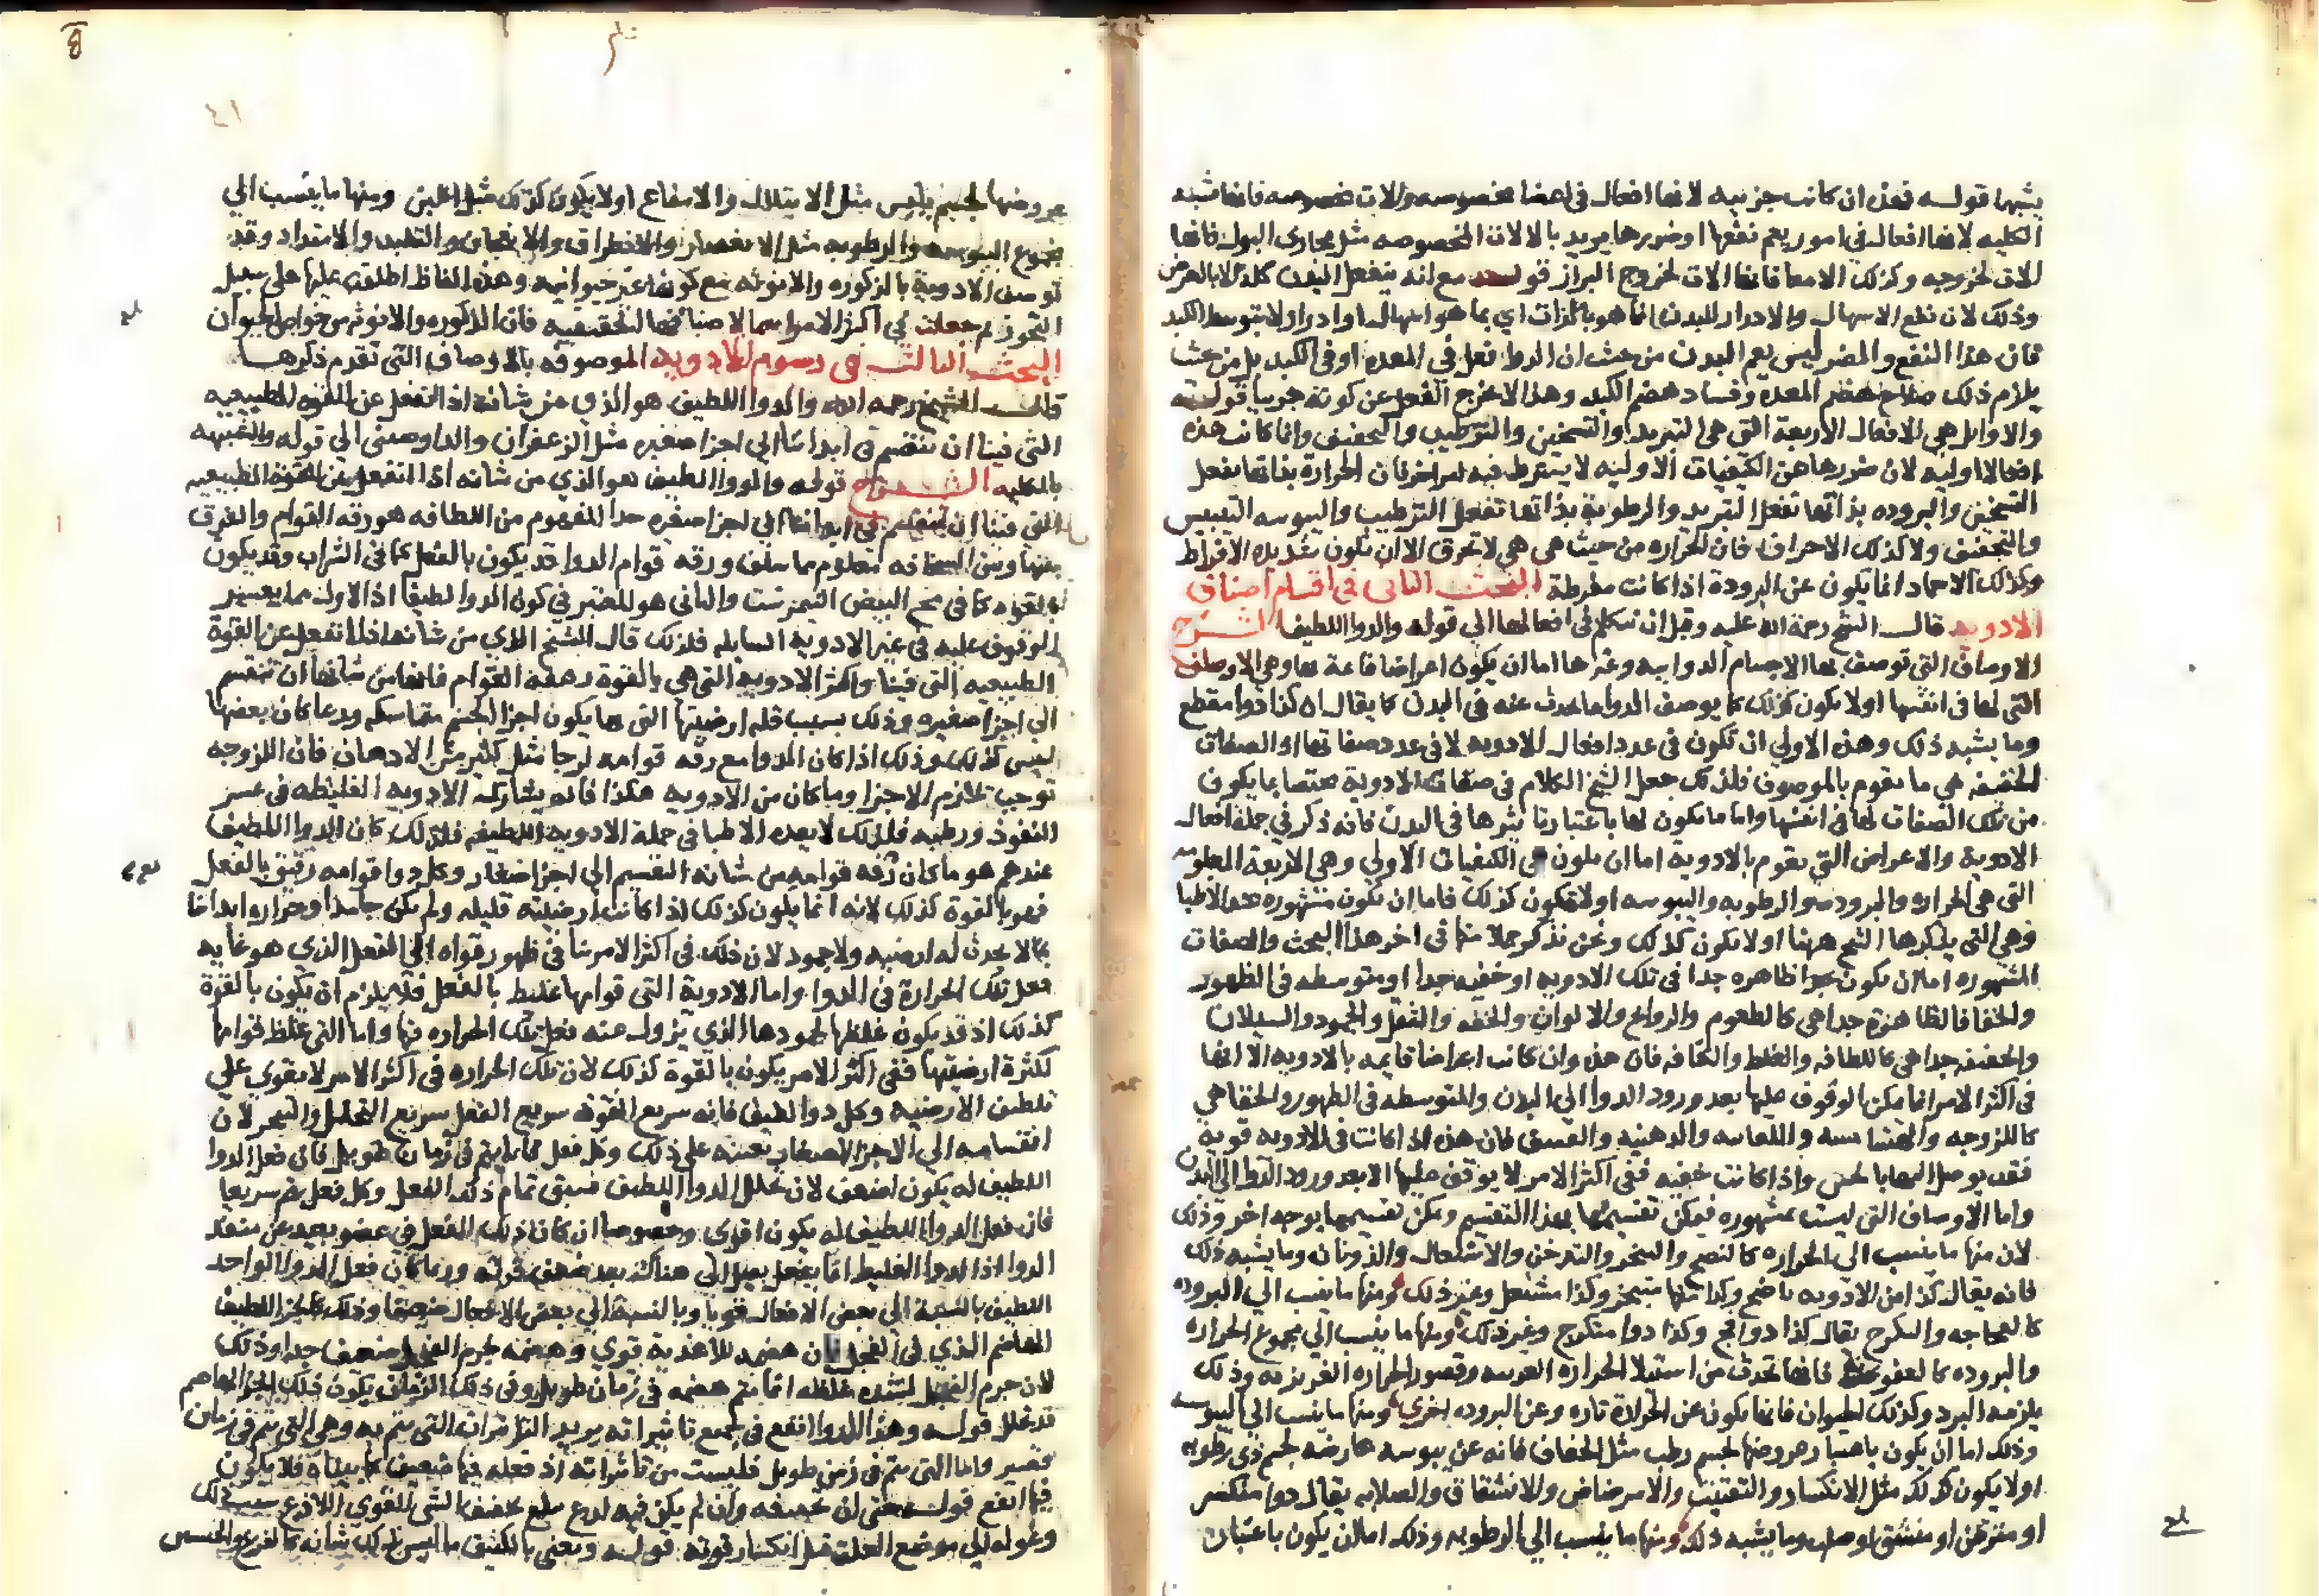 يشبهها قوله فهذه ان كانت جزييه لانها افعال في اعضا مخصوصه والات مخصوصه فانها تشبه
الكليه لانها افعال في امور يعم نفعها او ضررها يريد بالالات المخصوصه مثل مجاري البول فانها
الات لخروجه وكذلك الامعا فانها الات لخروج البراز قوله مع انه ينفعل البدن كله لا بالعرض
وذلك لان نفع الاسهال والادرار للبدن انما هو بالذات اي بما هو اسهال او ادرار لا بتوسط الكبد
فان هذا النفع والمضر ليس يعم البدن من حيث ان الدوا فعل في المعده او في الكبد بل من حيث
يلزم ذلك صلاح هضم المعده وفساد هضم الكبد وهذا لا يخرج الفعل عن كونه جزييا قوله
والاوايل هي الافعال الاربعة التي هي التبريد والتسخين والترطيب والتجفيف وانما كانت هذه
افعالا اوليه لان صدورها عن الكيفيات الاوليه لا يشترط فيه امر اخر فان الحرارة بذاتها يفعل
التسخين والبروده بذاتها تفعل التبريد والرطوبة بذاتها تفعل الترطيب واليبوسه التيبيس
والتجفيف ولا كذلك الاحراق فان الحراره من حيث هي هي لا تحرق الا ان تكون شديده الافراط
وكذلك الاجماد انما يكون عن البرودة اذا كانت مفرطة البحث الثاني في اقسام اصناف
الادويه قال الشيخ رحمة الله عليه وقبل ان نتكلم في افعالها الي قوله والدوا اللطيف الشرح
الاوصاف التي توصف بها الاجسام الدوائيه وغيرها اما ان يكون اعراضا قائمة بها وهي الاوصاف
التي لها في انفسها او لا يكون كذلك كما يوصف الدوا بما يحدث عنه في البدن كما يقال ان كذا دوا مقطع
وما يشبه ذلك وهذه الاولي ان تكون في عدد افعال الادويه لا في عدد صفاتها اذ الصفات
الحقيقيه هي ما يقوم بالموصوف فلذلك جعل الشيخ الكلام في صفات الادوية مختصا بما يكون
من تلك الصفات لها في انفسها واما ما يكون لها باعتبار تاثيرها في البدن فانه ذكر في جملة افعال
الادوية والاعراض التي تقوم بالادوية اما ان يكون هي الكيفيات الاولي وهي الاربعة المعلومه
التي هي الحراره والبروده والرطوبه واليبوسه او لا تكون كذلك فاما ان تكون مشهوره عند الاطبا
وهي التي يذكرها الشيخ ههنا او لا تكون كذلك ونحن نذكر جملا منها في اخر هذا البحث والصفات
المشهوره اما ان يكون ظاهره جدا في تلك الادويه او خفيه جدا او متوسطه في الظهور
والخفا فالظاهرة جدا هي كالطعوم والروايح والالوان والخفه والثقل والجمود والسيلان
والخفيه جدا هي كاللطافه والغلظ والكثافه فان هذه وان كانت اعراضا قايمه بالادويه الا انها
في اكثر الامر انما يمكن الوقوف عليها بعد ورود الدوا الي البدن والمتوسطه في الظهور والخفا هي
كاللزوجه والهشاشه واللعابيه والدهنيه والنشف فان هذه اذا كانت في الادويه قوية
فقد يوصل اليها بالحس واذا كانت خفيه ففي اكثر الامر لا يوقف عليها الا بعد ورود الدوا الي البدن
واما الاوصاف التي ليست بمشهوره فيمكن تقسيمها بهذا التقسيم ويمكن تقسيمها بوجه اخر وذلك
لان منها ما ينسب الي الحراره كالنضج والتبخر والتدخن والاشتعال والذوبان وما يشبه ذلك
فانه يقال كذا من الادويه ناضج وكذا منها متبخر وكذا مشتعل وغير ذلك ومنها ما ينسب الي البروده
كالفجاجه والتكرج يقال كذا دوا فج وكذا دوا متكرج وغير ذلك ومنها ما ينسب الي مجموع الحراره
والبروده كالعفونه فانها تحدث من استيلا الحراره الغريبه وقصور الحراره الغريزيه وذلك
يلزمه البرد وكذلك فانها يكون عن الحرارة تاره وعن البروده اخري ومنها ما ينسب الي اليبوسه
وذلك اما ان يكون باعتبار عروضها لجسم رطب مثل الجفاف فانه عن يبوسه عارضه لجسم ذي رطوبه
او لا يكون كذلك مثل الانكسار والتفتيت والارضاض والانشقاق والصلابه يقال دوا منكسر
او متفتت او منشق او صلب وما يشبه ذلك ومنها ما ينسب الي الرطوبه وذلك اما ان يكون باعتبار
٤١
عروضها لجسم يابس مثل الابتلال والانتقاع او لا يكون كذلك مثل اللين ومنها ما ينسب الي
مجموع اليبوسه والرطوبه مثل الانعصار والانطراق والانعجان والتلبد والامتداد وقد
توصف الادوية بالذكوره والانوثه مع كونها غير حيوانيه وهذه الفاظ اطلقت عليها علي سبيل
التجوز ثم جعلت في اكثر الامر اسما لاصنافها الحقيقيه فان الذكوره والانوثه من خواص الحيوان
البحث الثالث في رسوم الادويه الموصوفه بالاوصاف التي تقدم ذكرها
قال الشيخ رحمه الله والدوا اللطيف هو الذي من شانه اذا انفعل عن القوه الطبيعيه
التي فينا ان ينقسم في ابداننا الي اجزا صغيره مثل الزعفران والدارصيني الي قوله
بالكليه الشرح قوله والدوا اللطيف هو الذي من شانه اذا انفعل عن القوة الطبيعيه
التي فينا ان ينقسم في ابداننا الي اجزا صغيره هذا المفهوم من اللطافه هو رقه القوام والفرق
بينها وبين السخافه معلوم مما سلف ورقه قوام الدوا قد يكون بالفعل كما في الشراب وقد يكون
بالقوه كما في مح البيض النيمرشت والثاني هو المعتبر في كون الدوا لطيفا اذ الاول مما يعسر
الوقوف عليه في غير الادوية السايله فلذلك قال الشيخ الذي من شانه اذا انفعل عن القوة
الطبيعيه التي فينا واكثر الادويه التي هي بالقوة رقيقه القوام فانها من شانها ان تنقسم
الي اجزا صغيره وذلك بسبب قله ارضيتها التي بها يكون اجزا الجسم متماسكه وربما كان بعضها
ليس كذلك وذلك اذا كان الدوا مع رقه قوامه لزجا مثل كثير من الادهان فان اللزوجه
توجب تلازم الاجزا وما كان من الادويه هكذا فانه يشارك الادويه الغليظه في عسر
النفوذ ورطبه فلذلك لا يعده الاطبا في جملة الادويه اللطيفه فلذلك كان الدوا اللطيف
عندهم هو ما كان رقه قوامه من شانه التقسيم الي اجزا صغار وكل دوا قوامه رقيق بالفعل
فهو بالقوة كذلك لانه انما يكون كذلك اذا كانت ارضيته قليله ولم يكن جامدا وحرارة ابداننا
مما لا يحدث له ارضيه ولا جمود لان ذلك في اكثر الامر ينافي ظهور قواه الي الفعل الذي هو غايه
فعل تلك الحرارة في الدوا واما الادوية التي قوامها غليظ بالفعل فلا يلزم ان يكون بالقوة
كذلك اذ قد يكون غلظها لجمودها الذي يزول عنه فعل تلك الحراره فيها واما التي غلظ قوامها
لكثرة ارضيتها ففي اكثر الامر يكون بالقوة كذلك لان تلك الحراره في اكثر الامر لا يقوي علي
تلطيف الارضيه وكل دوا لطيف فانه سريع النفوذ سريع الفعل سريع التحلل والتبخر لان
انقسامه الي الاجزا الصغار يعينه علي ذلك وكل فعل انما يتم في زمان طويل فان فعل الدوا
اللطيف له يكون اضعف لان تحلل الدوا اللطيف يسبق تمام ذلك الفعل وكل فعل يتم سريعا
فان فعل الدوا اللطيف له يكون اقوي وخصوصا ان كان ذلك الفعل في عضو بعيد عن منفذ
الدوا اذ الدوا الغليظ انما يصل الي هناك بعد ضعف قوته وربما كان فعل الدوا الواحد
اللطيف بالنسبة الي بعض الافعال قويا وبالنسبة الي بعض الافعال ضعيفا وذلك كالجزء اللطيف
الهاضم الذي في الفجل فان هضمه للاغذية قوي وهضمه لجرم الفجل ضعيف جدا وذلك
لان جرم الفجل لشده غلظه انما يتم هضمه في زمان طويل وفي ذلك الزمان يكون ذلك الجزء الهاضم
قد تحلل قوله وهذا الدوا انفع في جميع تاثيراته يريد التاثيرات التي تتم به وهي التي تتم في زمان
قصير واما التي تتم في زمن طويل فليست من تاثيراته اذ فعله فيها ضعيف كما بيناه فلا يكون
فيها انفع قوله حتي ان تجفيفه وان لم يكن فيه لدع يبلغ تجفيف الشي القوي اللادع سبب ذلك
وصوله الي موضع العلة قبل انكسار قوته قوله ونعني بالكثيف ما ليس ذلك شانه كالقرع والجبسين